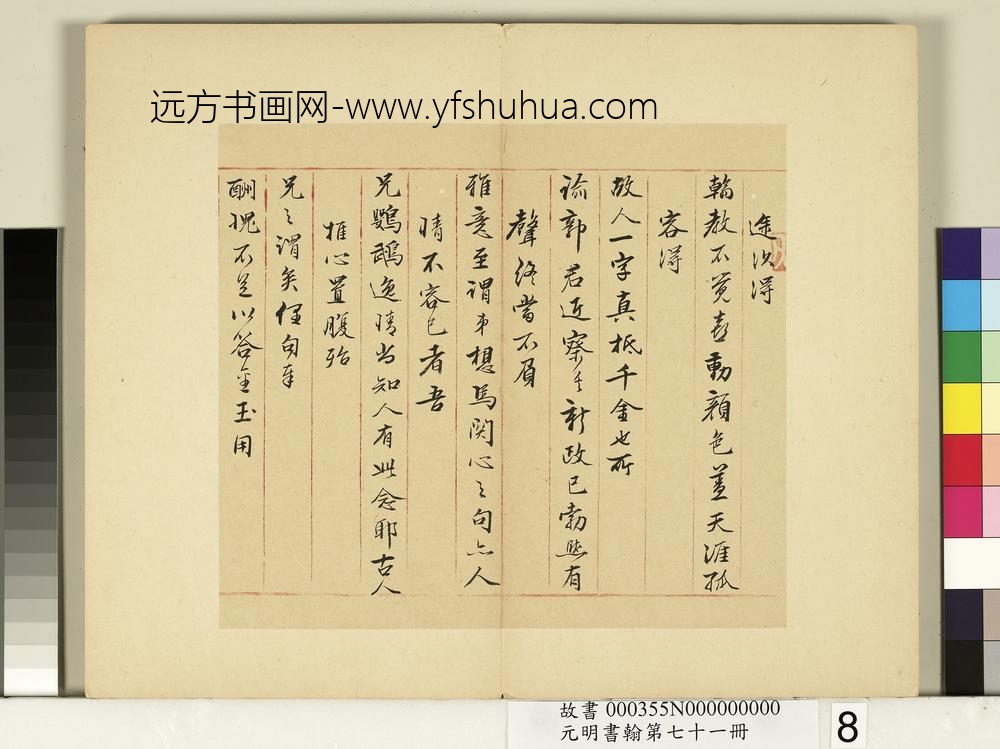 远方书画网-www.yfshuhua.com
途次得
翰教不覺喜動顏色蓋天涯孤
客得
故人一字真抵千金也所
諭郭君近察其新政已勃然有
聲終當不負
雅意至謂弟想馬關心之句亦人
情不容已者吾
兄鸚鵡逸情當知人有此念耶古人
推心置腹殆
兄之謂矣俚句奉
酬愧不足以答金玉用
故書 000355N000000000
元明書翰第七十一冊
8